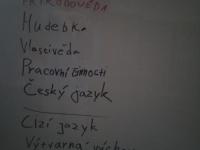 PŘÍRODOVĚDA
Hudebka
Vlastivěda
Pracovní činnosti
Český jazyk
Cizí jazyk
Výtvarná